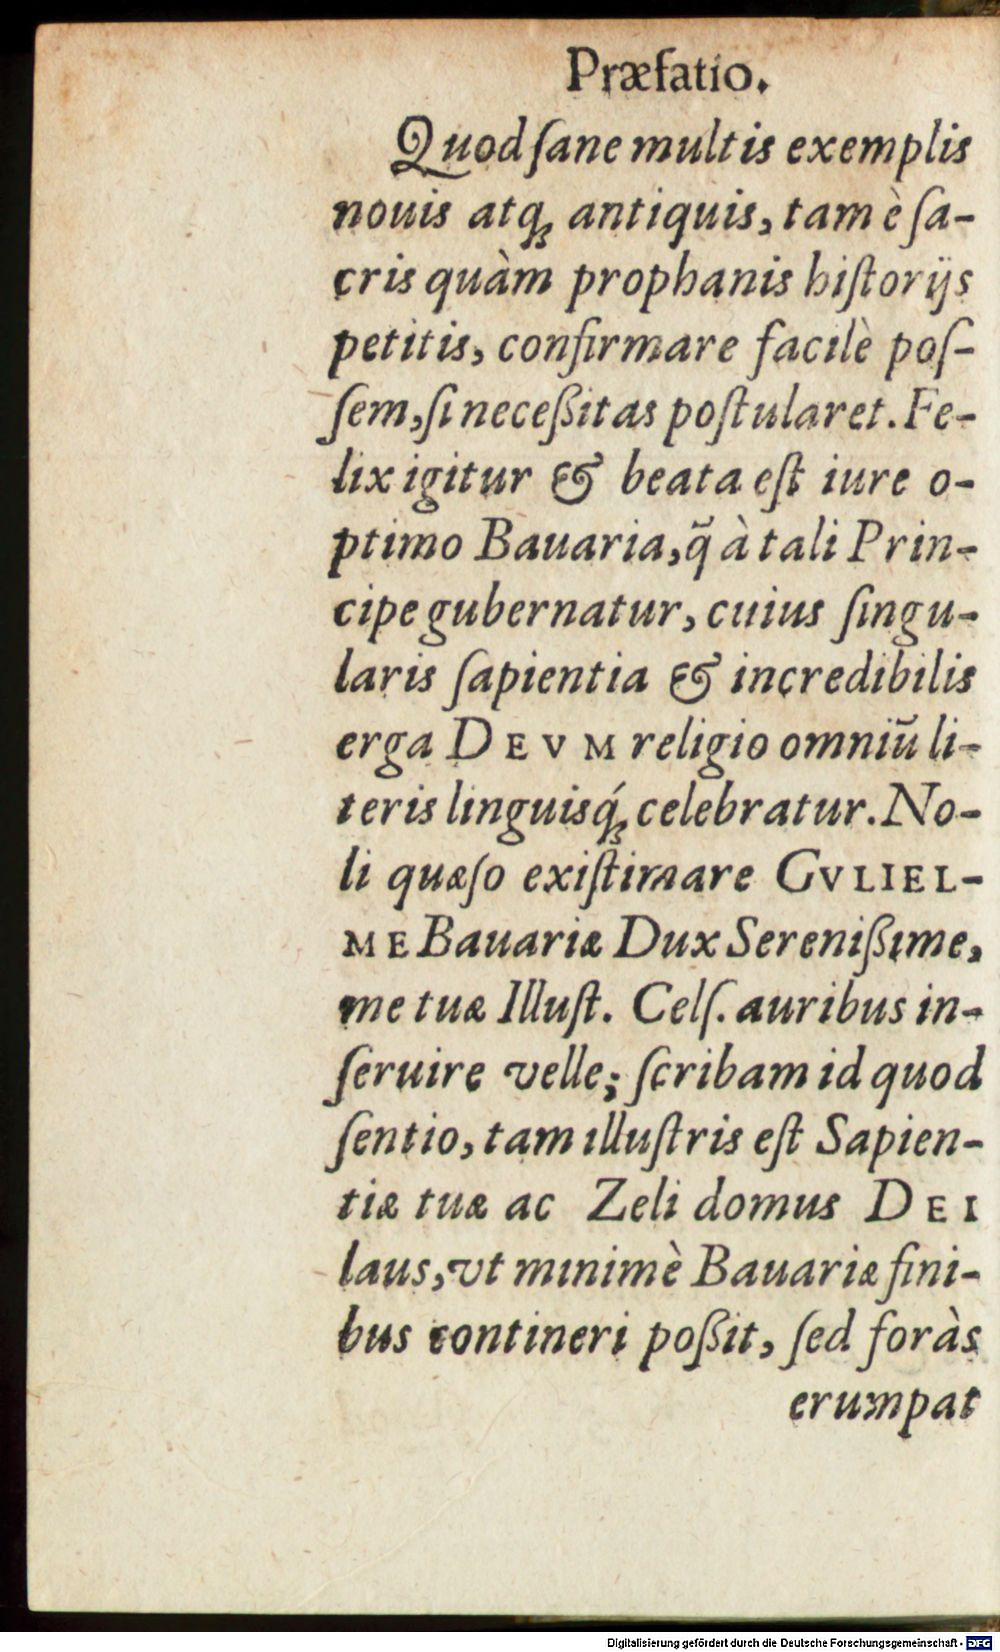 Præfatio.
Quod ſane multis exemplis
nouis atq́ꝫ antiquis, tam è ſa-
cris quàm prophanis hiſtorijs
petitis, confirmare facilè poſ-
ſem, ſi neceßitas poſtularet. Fe-
lix igitur & beata eſt iure o-
ptimo Bauaria, q̃ à tali Prin-
cipe gubernatur, cuius ſingu-
laris ſapientia & incredibilis
erga DEVM religio omniũ li-
teris linguisq́ꝫ celebratur. No-
li quæſo exiſtimare GVLIEL-
ME Bauariæ Dux Serenißime,
me tuæ Illuſt. Celſ. auribus in-
ſeruire velle; ſcribam id quod
ſentio, tam illuſtris eſt Sapien-
tiæ tuæ ac Zeli domus DEI
laus, vt minimè Bauariæ fini-
bus contineri poßit, ſed foràs
erumpat
Digitalisierung gefördert durch die Deutsche Forschungsgemeinschaft - DFG